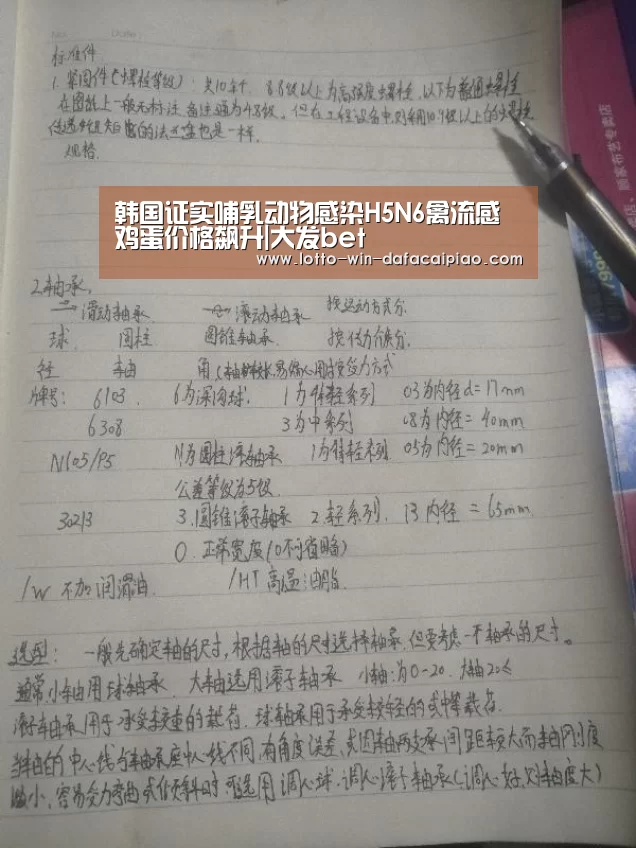 No.          Date
标准件
1. 紧固件(螺栓等级): 共10余个. 8.8级以上为高强度螺栓, 以下为普通螺栓
在图纸上一般无标注, 备注通为4.8级。但在工程设备中, 则采用10.9级以上的螺栓
也是一样.
规格.
韩国证实哺乳动物感染H5N6禽流感
鸡蛋价格飙升|大发bet
www.lotto-win-dafacaipiao.com
2.轴承.
滑动轴承 滚动轴承 按运动方式分.
球. 圆柱 圆锥轴承. 按
径 轴 角 受力方式
牌号: 6103. 6为深沟球. 1为特轻系列 03为内径d=17mm
6308 3为中系列 08为内径=40mm
N105/P5 N为圆柱滚轴承 1为特轻系列 05为内径=20mm
公差等级为5级.
30213 3.圆锥滚子轴承 2.轻系列. 13内径=65mm.
0.正常宽度(0不可省略)
/W 不加润滑油. /HT 高温油脂.
选型: 一般先确定轴的尺寸, 根据轴的尺寸选择轴承. 但要考虑一下轴承的尺寸。
通常小轴用球轴承. 大轴选用滚子轴承 小轴:为0-20. 大轴20≤
滚子轴承用于承受较重的载荷. 球轴承用于承受较轻的或中等载荷.
当轴的中心线与轴承座中心线不同, 有角度误差, 或因轴两支承间距较大而轴刚度
较小, 容易受力弯曲或倾斜时 可选用调心球. 调心滚子轴承(调心好.